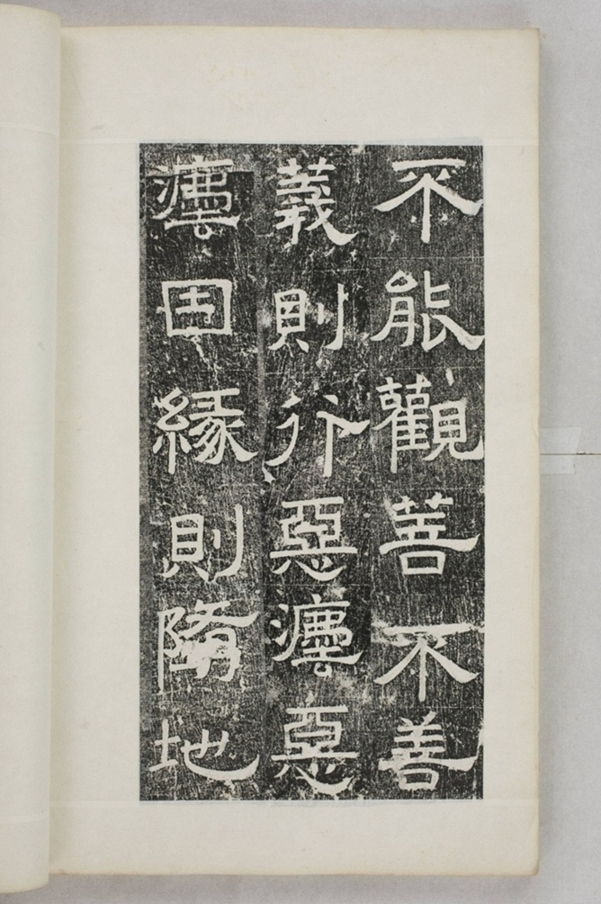 不能觀善不善
義則行惡灋惡
灋因緣則隋地